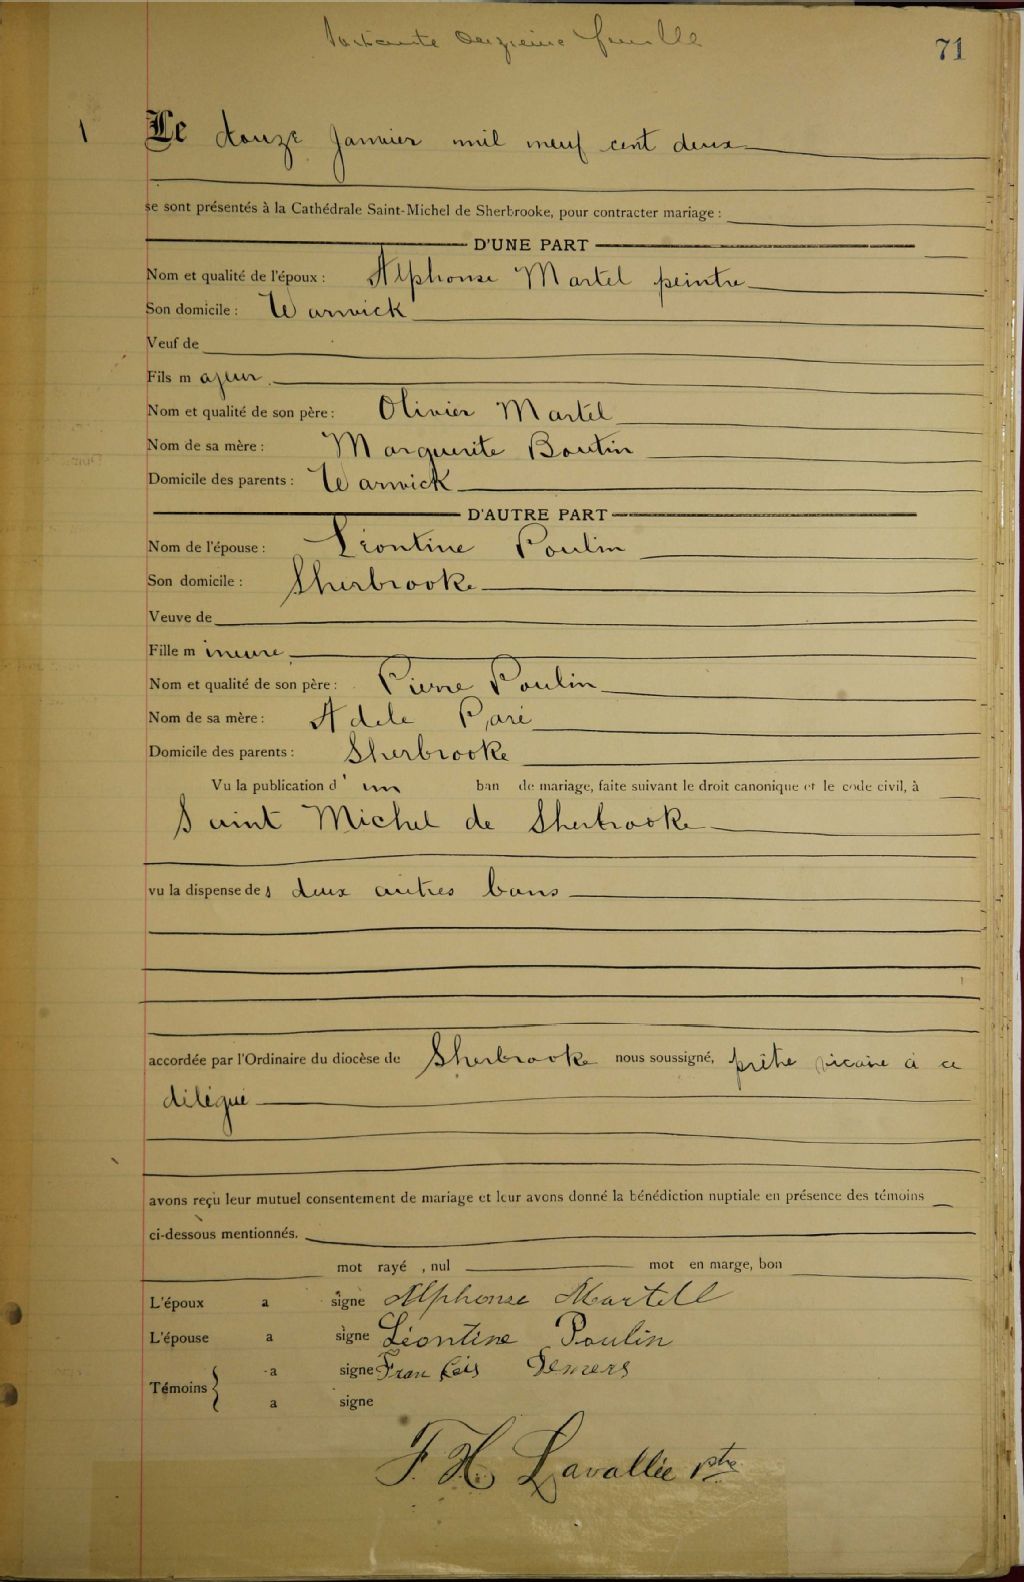 Soixante onzieme feuille
71
1
Le douze Janvier mil neuf cent deux
se sont présentés à la Cathédrale Saint-Michel de Sherbrooke, pour contracter mariage :
D'UNE PART
Nom et qualité de l'époux : Alphonse Martel peintre
Son domicile : Warwick
Veuf de
Fils m ajeur
Nom et qualité de son père : Olivier Martel
Nom de sa mère : Marguerite Boutin
Domicile des parents : Warwick
D'AUTRE PART
Nom de l'épouse : Léontine Poulin
Son domicile : Sherbrooke
Veuve de
Fille m ineure
Nom et qualité de son père : Pierre Poulin
Nom de sa mère : Adele Paré
Domicile des parents : Sherbrooke
Vu la publication d ' un ban de mariage, faite suivant le droit canonique et le code civil, à
Saint Michel de Sherbrooke
vu la dispense de s deux autres bans
accordée par l'Ordinaire du diocèse de Sherbrooke nous soussigné, prêtre vicaire à ce
délégué
avons reçu leur mutuel consentement de mariage et leur avons donné la bénédiction nuptiale en présence des témoins
ci-dessous mentionnés.
mot rayé , nul mot en marge, bon
L'époux a signé Alphonse Martell
L'épouse a signé Léontine Poulin
a signé François Demers
Témoins {
a signé
F. H. Lavallée ptre